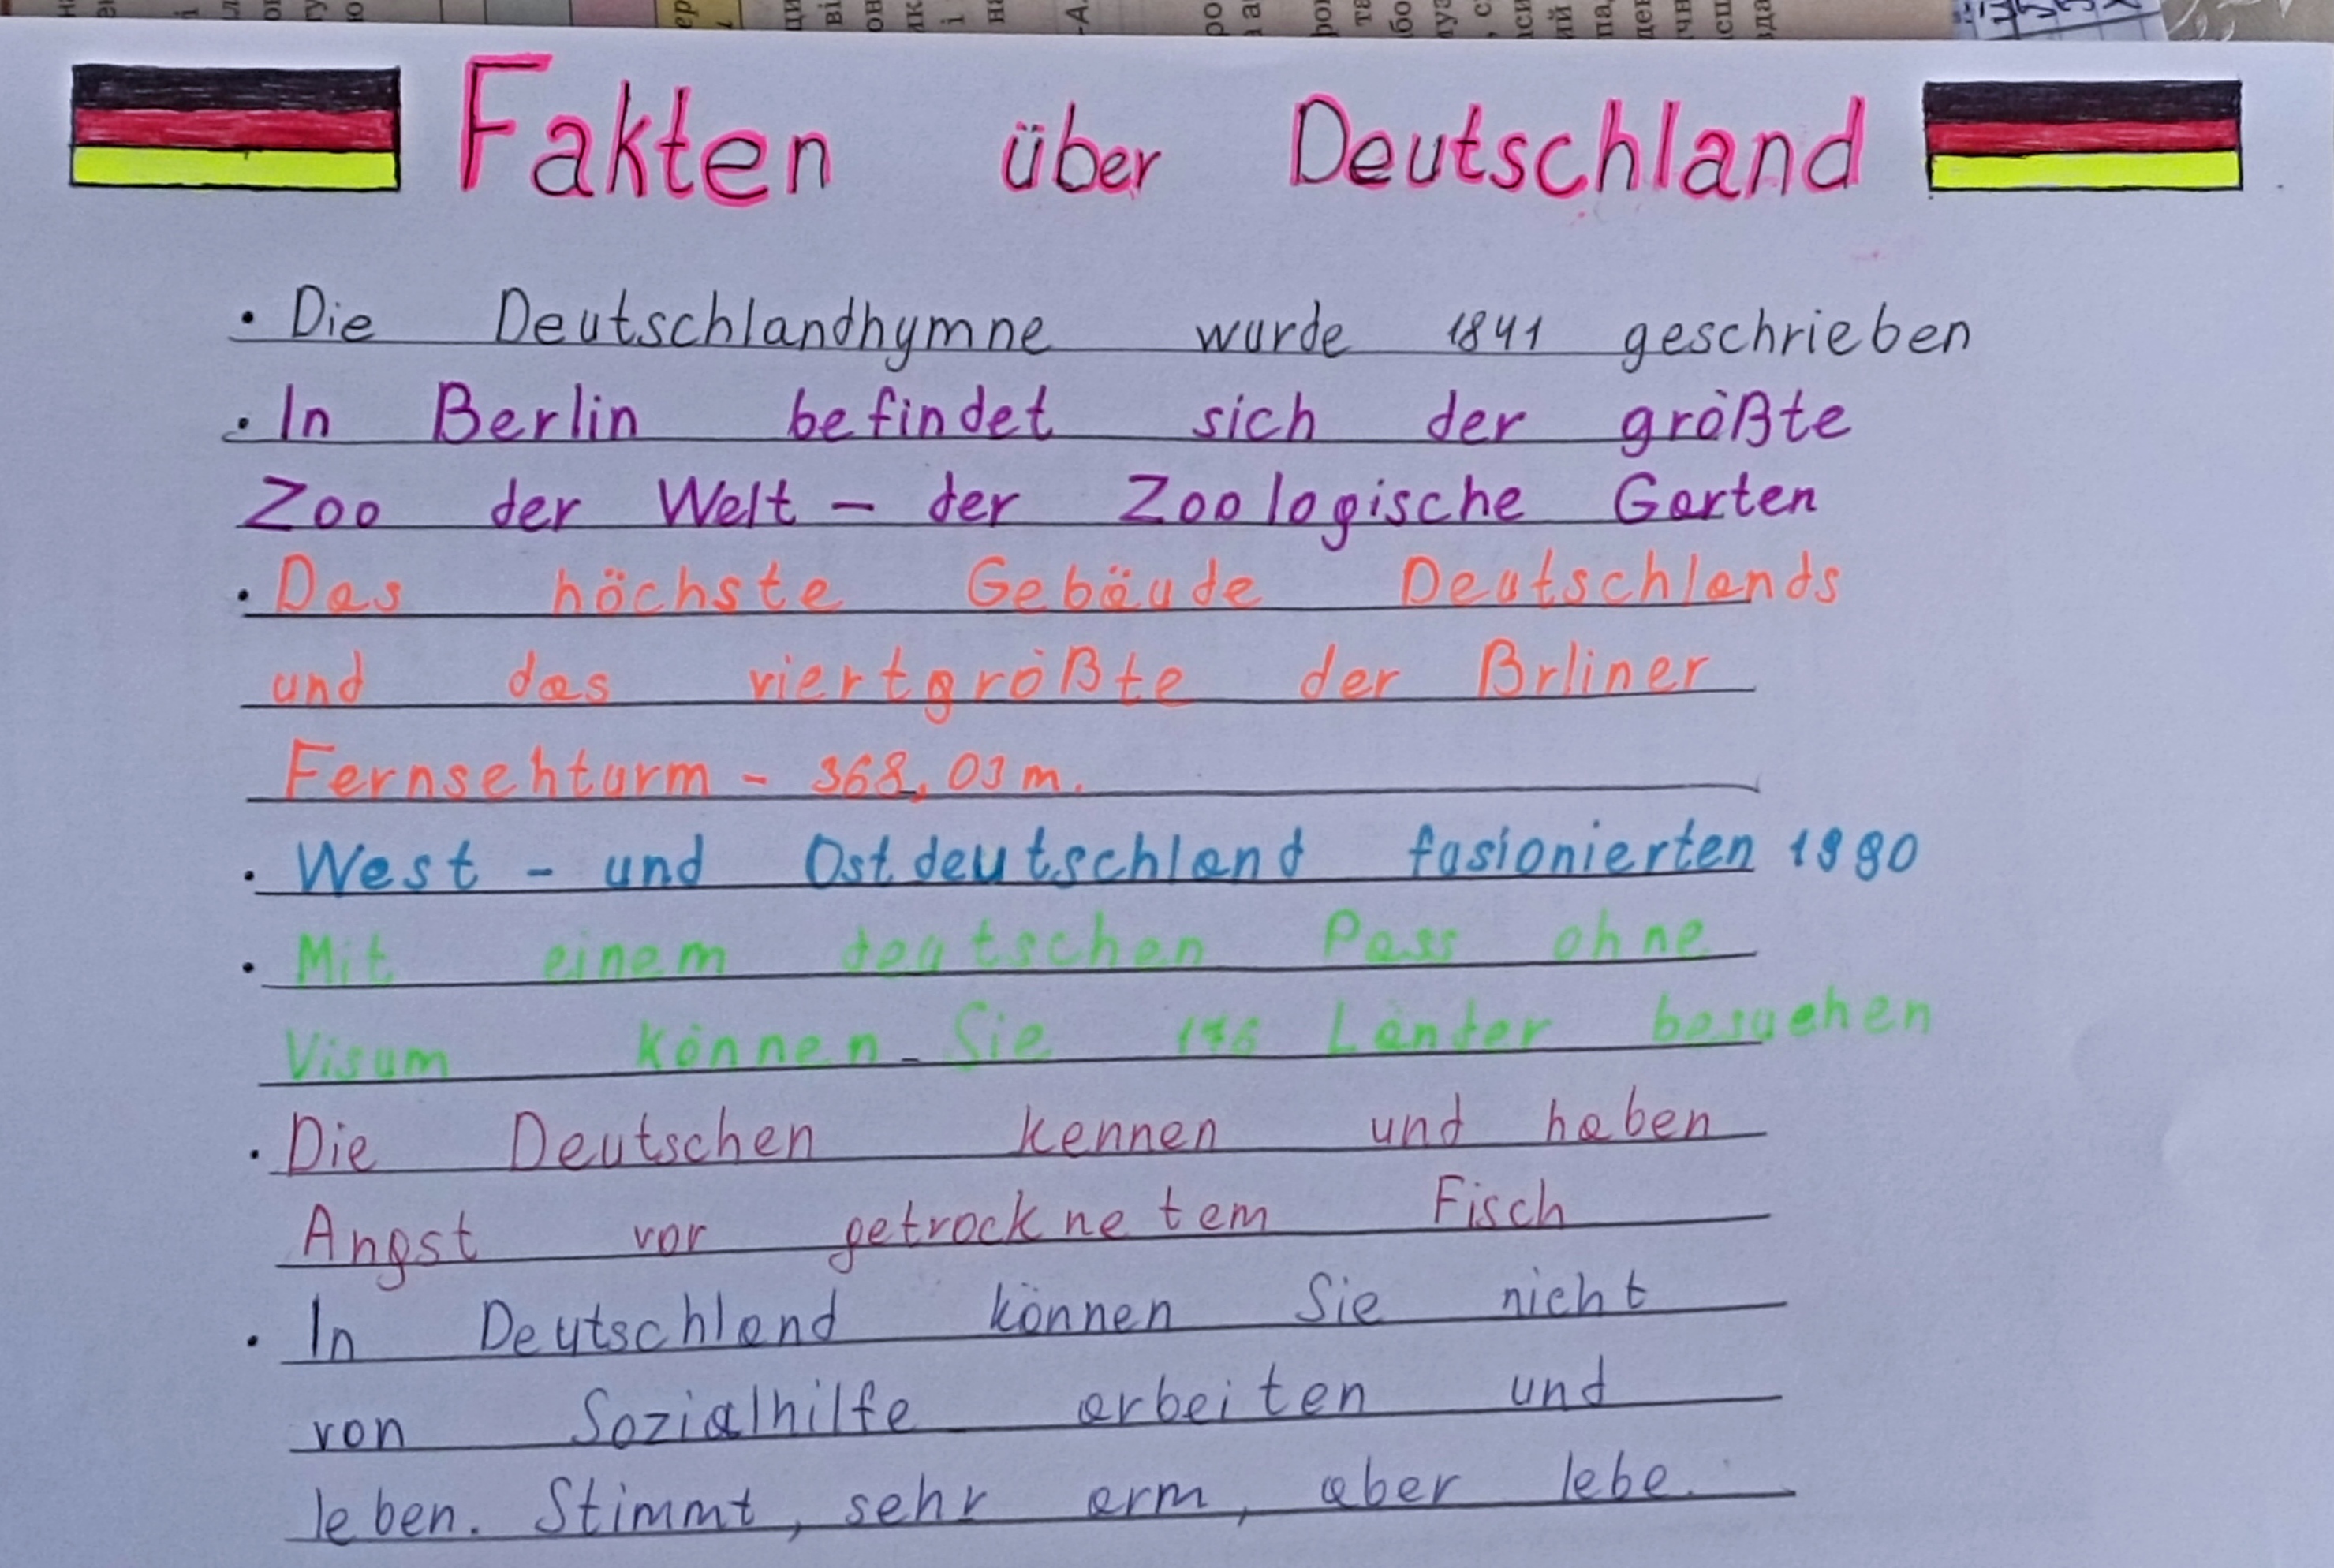 Fakten über Deutschland
• Die Deutschlandhymne wurde 1841 geschrieben
• In Berlin befindet sich der größte
Zoo der Welt – der Zoologische Garten
• Das höchste Gebäude Deutschlands
und das viertgrößte der Brliner
Fernsehturm - 368,03m.
• West - und Ostdeutschland fusionierten 1990
• Mit einem deutschen Pass ohne
Visum können Sie 176 Länder besuchen
• Die Deutschen kennen und haben
Angst vor getrocknetem Fisch
• In Deutschland können Sie nicht
von Sozialhilfe arbeiten und
leben. Stimmt, sehr arm, aber lebe.